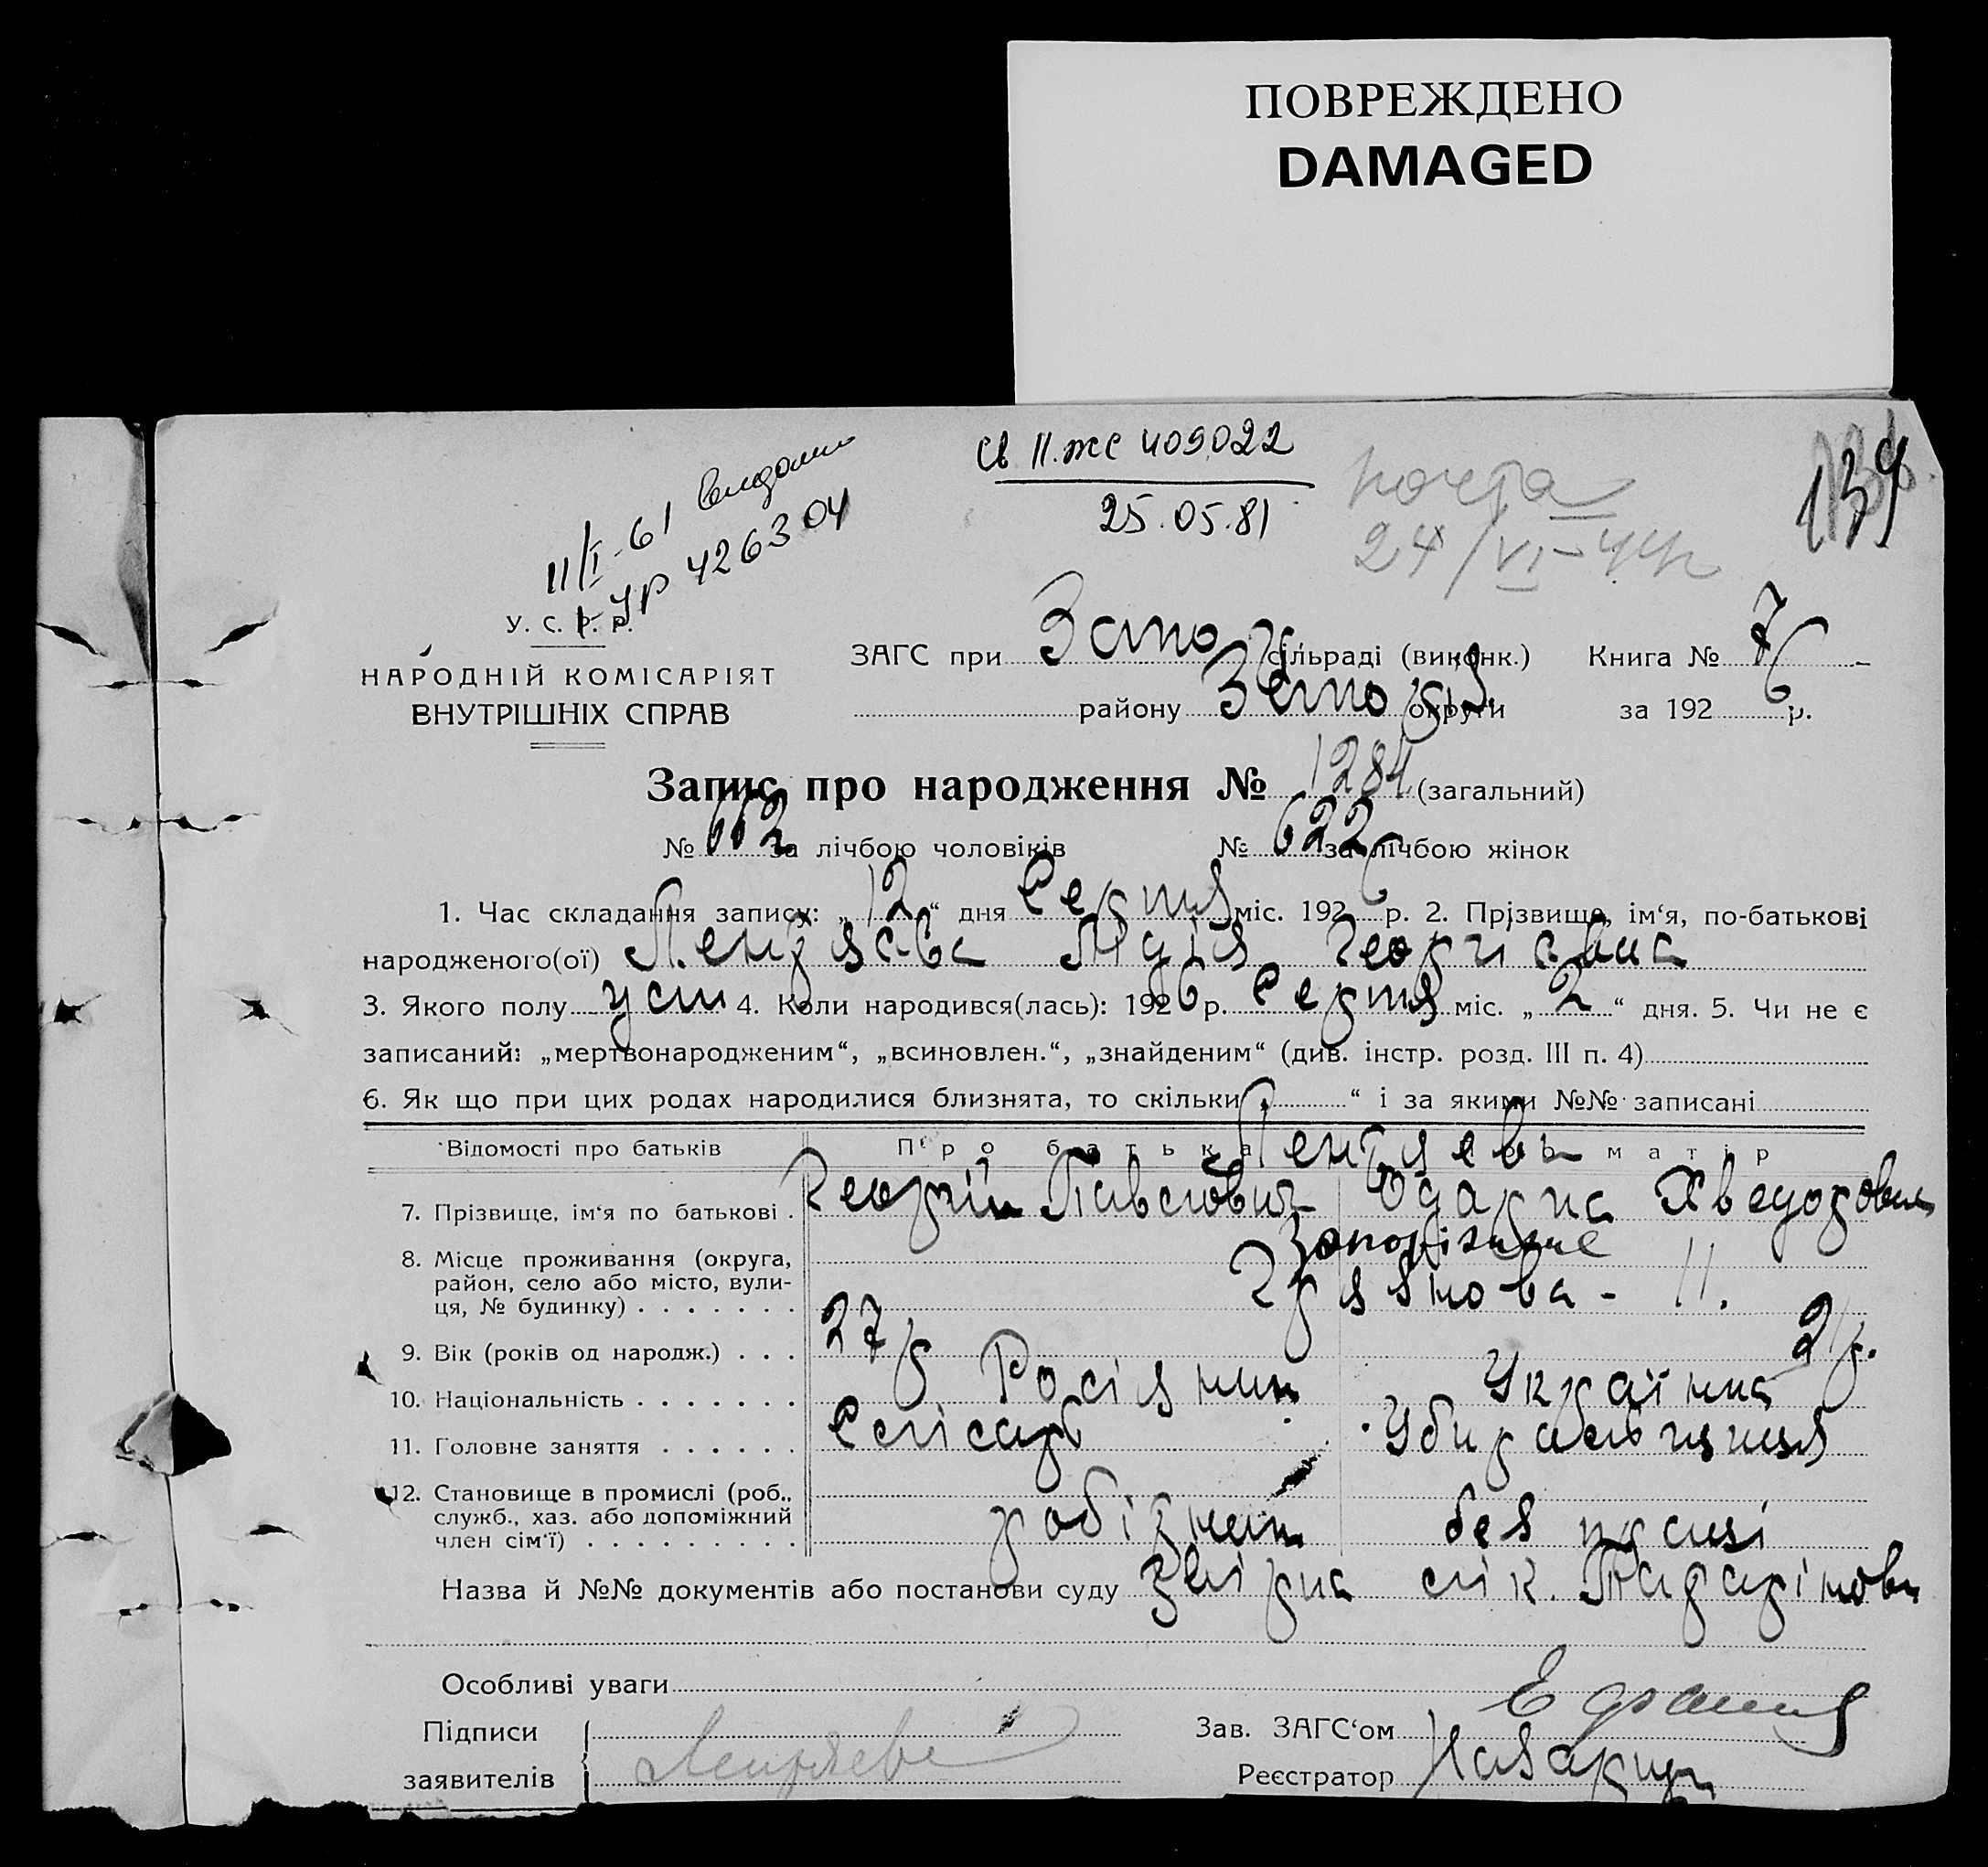 ПОВРЕЖДЕНО
DAMAGED
Св II.жс 409022
25.05.81
почта
24/VI-44р
139
11/I-61
УР 426304
У. С. Р. Р.
НАРОДНІЙ КОМІСАРІЯТ
ВНУТРІШНІХ СПРАВ
ЗАГС при Запо сільраді (виконк.) Книга № 7
району Запо округи за 192 6 р.
Запис про народження № 1284 (загальний)
№ 662 за лічбою чоловіків № 622 за лічбою жінок
1. Час складання запису: „ 12 “ дня Серпня міс. 192 6 р. 2. Прізвище, ім‘я, по-батькові
народженого(ої) Лідія Георгиевна
3. Якого полу жін 4. Коли народився(лась): 192 6 р. Серпня міс. „ 2 “ дня. 5. Чи не є
записаний: „мертвонародженим“, „всиновлен.“, „знайденим“ (див. інстр. розд. III п. 4)
6. Як що при цих родах народилися близнята, то скільки “ і за якими №№ записані
Відомості про батьків Про батька матір
7. Прізвище, ім‘я по батькові . Георгій Павлович Одарка Хведоровна
8. Місце проживання (округа,
район, село або місто, вули-
ця, № будинку) . . . . . . . Запоріжжє
11.
9. Вік (років од народж.) . . . 27 р 21 р.
10. Національність . . . . . . . Росіянин Українка
11. Головне заняття . . . . . . Слісарь Убиральниця
12. Становище в промислі (роб.,
служб., хаз. або допоміжний
член сім‘ї) . . . . . . . . . робізник без праці
Назва й №№ документів або постанови суду лік.
Особливі уваги
Підписи
заявителів
Зав. ЗАГС‘ом
Реєстратор